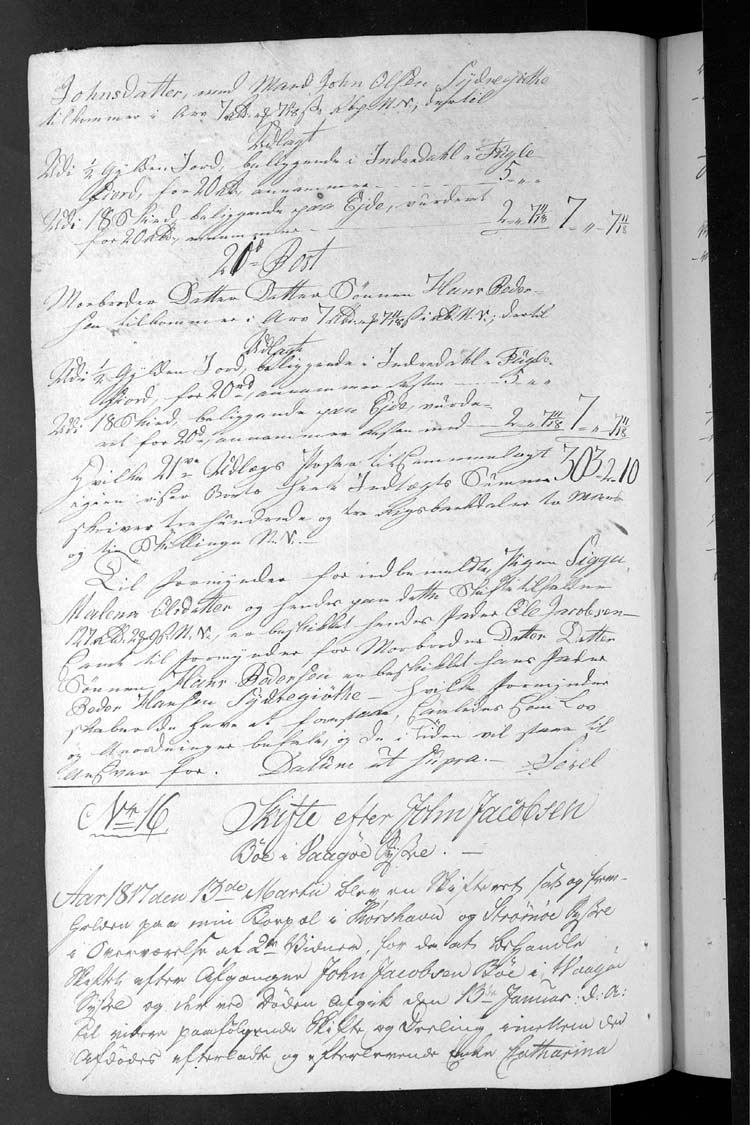 Johnsdatter, med Mand John Olsen Sydregjøthe
tilkommer i Arv 7 rbd. N.V., dertil
Udlagt
Udi ½ Gylden Jord, beliggende i Inderdahl i Fugle-
fiord, for 20 rbd., annammer 5 " "
Udi 18 Skind, beliggende paa Ejde, vurderet
for 20 rbd, annammer 2 " 7 11/18 7 " 7 11/18
21de Post
Morbroder Datter Datter Sønnen Hans Peder-
sen tilkommer i Arv 7 rbd. N.V.; dertil
Udlagt
Udi ½ Gylden Jord, beliggende i Inderdahl i Fugle-
fiord, for 20 rd, annammer 5 " "
Udi 18 Skind, beliggende paa Ejde, vurde-
ret for 20 rd, annammer med 2 " 7 11/18 7 " 7 11/18
Hvilke 21ve Udlægs Poster tilsammenlagt
igien viser Boets heele Indtægts Summa 303 " 2 " 10
skriver tre hundrede og tre Rigsbankdaler to Mark
og tie Skillinger N.V. —
Til Formynder for indbemeldte Pigen Sigga
Malena Olsdatter og hendes paa dette Skifte tilfaldne
127 rbd. N.V., er beskikket hendes Fader Ole Jacobsen —
Samt til Formynder for Morbroder Datter Datter
Sønnen, Hans Pedersen er beskikket hans Fader
Peder Hansen Sydregiøthe — Hvilke Formynder-
skaber de have at forestaae, saaledes som Lov
og Anordninger befale, og de i Tiden vil svare til
Ansvar for. Datum ut supra. —
No 16 Skifte efter John Jacobsen
Bøe i Vaagøe Sysse. —
Aar 1817 den 13de Martii blev en Skifteret sat og frem-
holden paa min Bopæl i Thorshavn og Strømøe Sysse
i Overværelse af 2de Vidner, for da at behandle
Skiftet efter Afgangne John Jacobsen Bøe i Waagøe
Sysse og der ved Døden afgik den 13de Januar: d. A:
til videre paafølgende Skifte og Deeling imellem den
Afdødes efterladte og efterlevende Enke Catharina